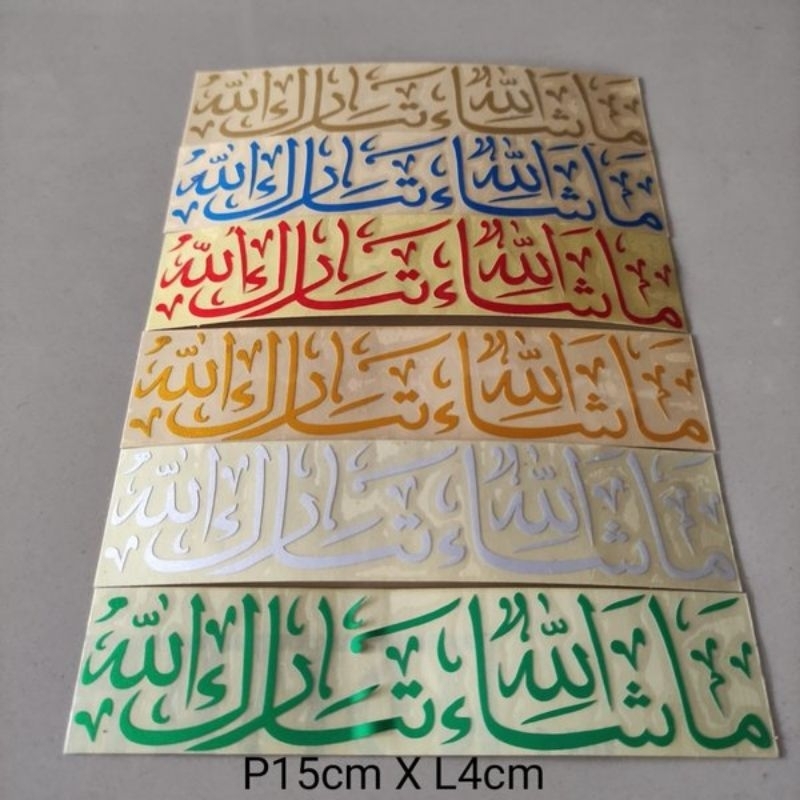 ما شاء الله تبارك الله
ما شاء الله تبارك الله
ما شاء الله تبارك الله
ما شاء الله تبارك الله
ما شاء الله تبارك الله
ما شاء الله تبارك الله
P15cm X L4cm